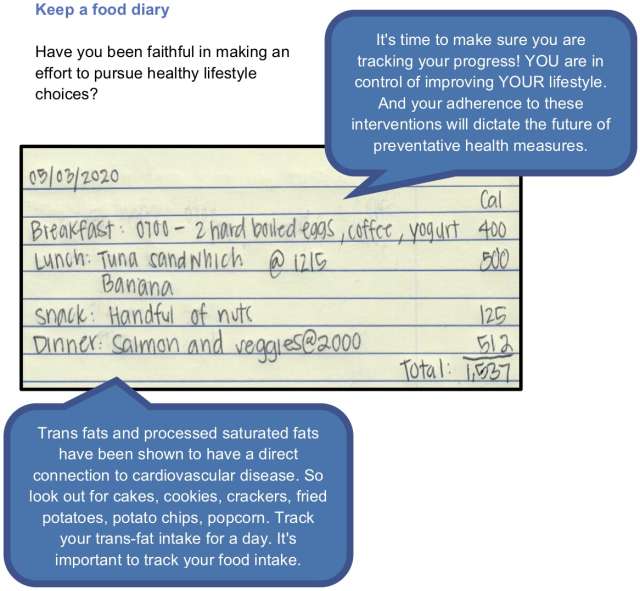 Keep a food diary
Have you been faithful in making an
effort to pursue healthy lifestyle
choices?
It's time to make sure you are
tracking your progress! YOU are in
control of improving YOUR lifestyle.
And your adherence to these
interventions will dictate the future of
preventative health measures.
05/03/2020
Cal
Breakfast: 0700 - 2 hard boiled eggs, coffee, yogurt 400
Lunch: Tuna sandwhich @ 1215 500
Banana
snack: Handful of nuts 125
Dinner: Salmon and veggies@2000 512
Total: 1,537
Trans fats and processed saturated fats
have been shown to have a direct
connection to cardiovascular disease. So
look out for cakes, cookies, crackers, fried
potatoes, potato chips, popcorn. Track
your trans-fat intake for a day. It's
important to track your food intake.